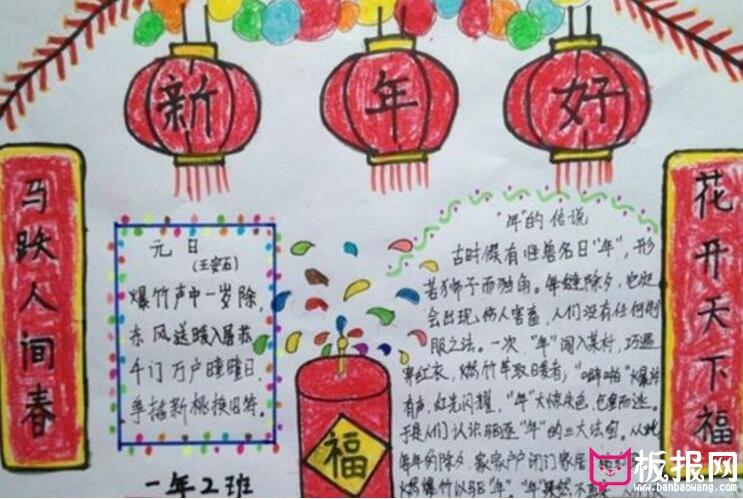 新年好
马跃人间春
花开天下福
元日
(王安石)
爆竹声中一岁除,
东风送暖入屠苏
千门万户曈曈日,
福
一年2班
"年"的传说
古时候有怪兽名曰"年",形
若狮子而独角。每逢除夕,
会出现,伤人害畜,人们没有任何制
服之法。一次,"年"闯入某村,巧遇
穿红衣,燃竹竿取暖者,"噼啪"爆炸
有声,红光闪耀,"年"大惊失色,而逃。
于是人们认识驱逐"年"的三大法宝。从此
每年的除夕,家家户户闭门家居
燃爆竹以驱"年","年"果然不
板报网
www.banbaowang.com